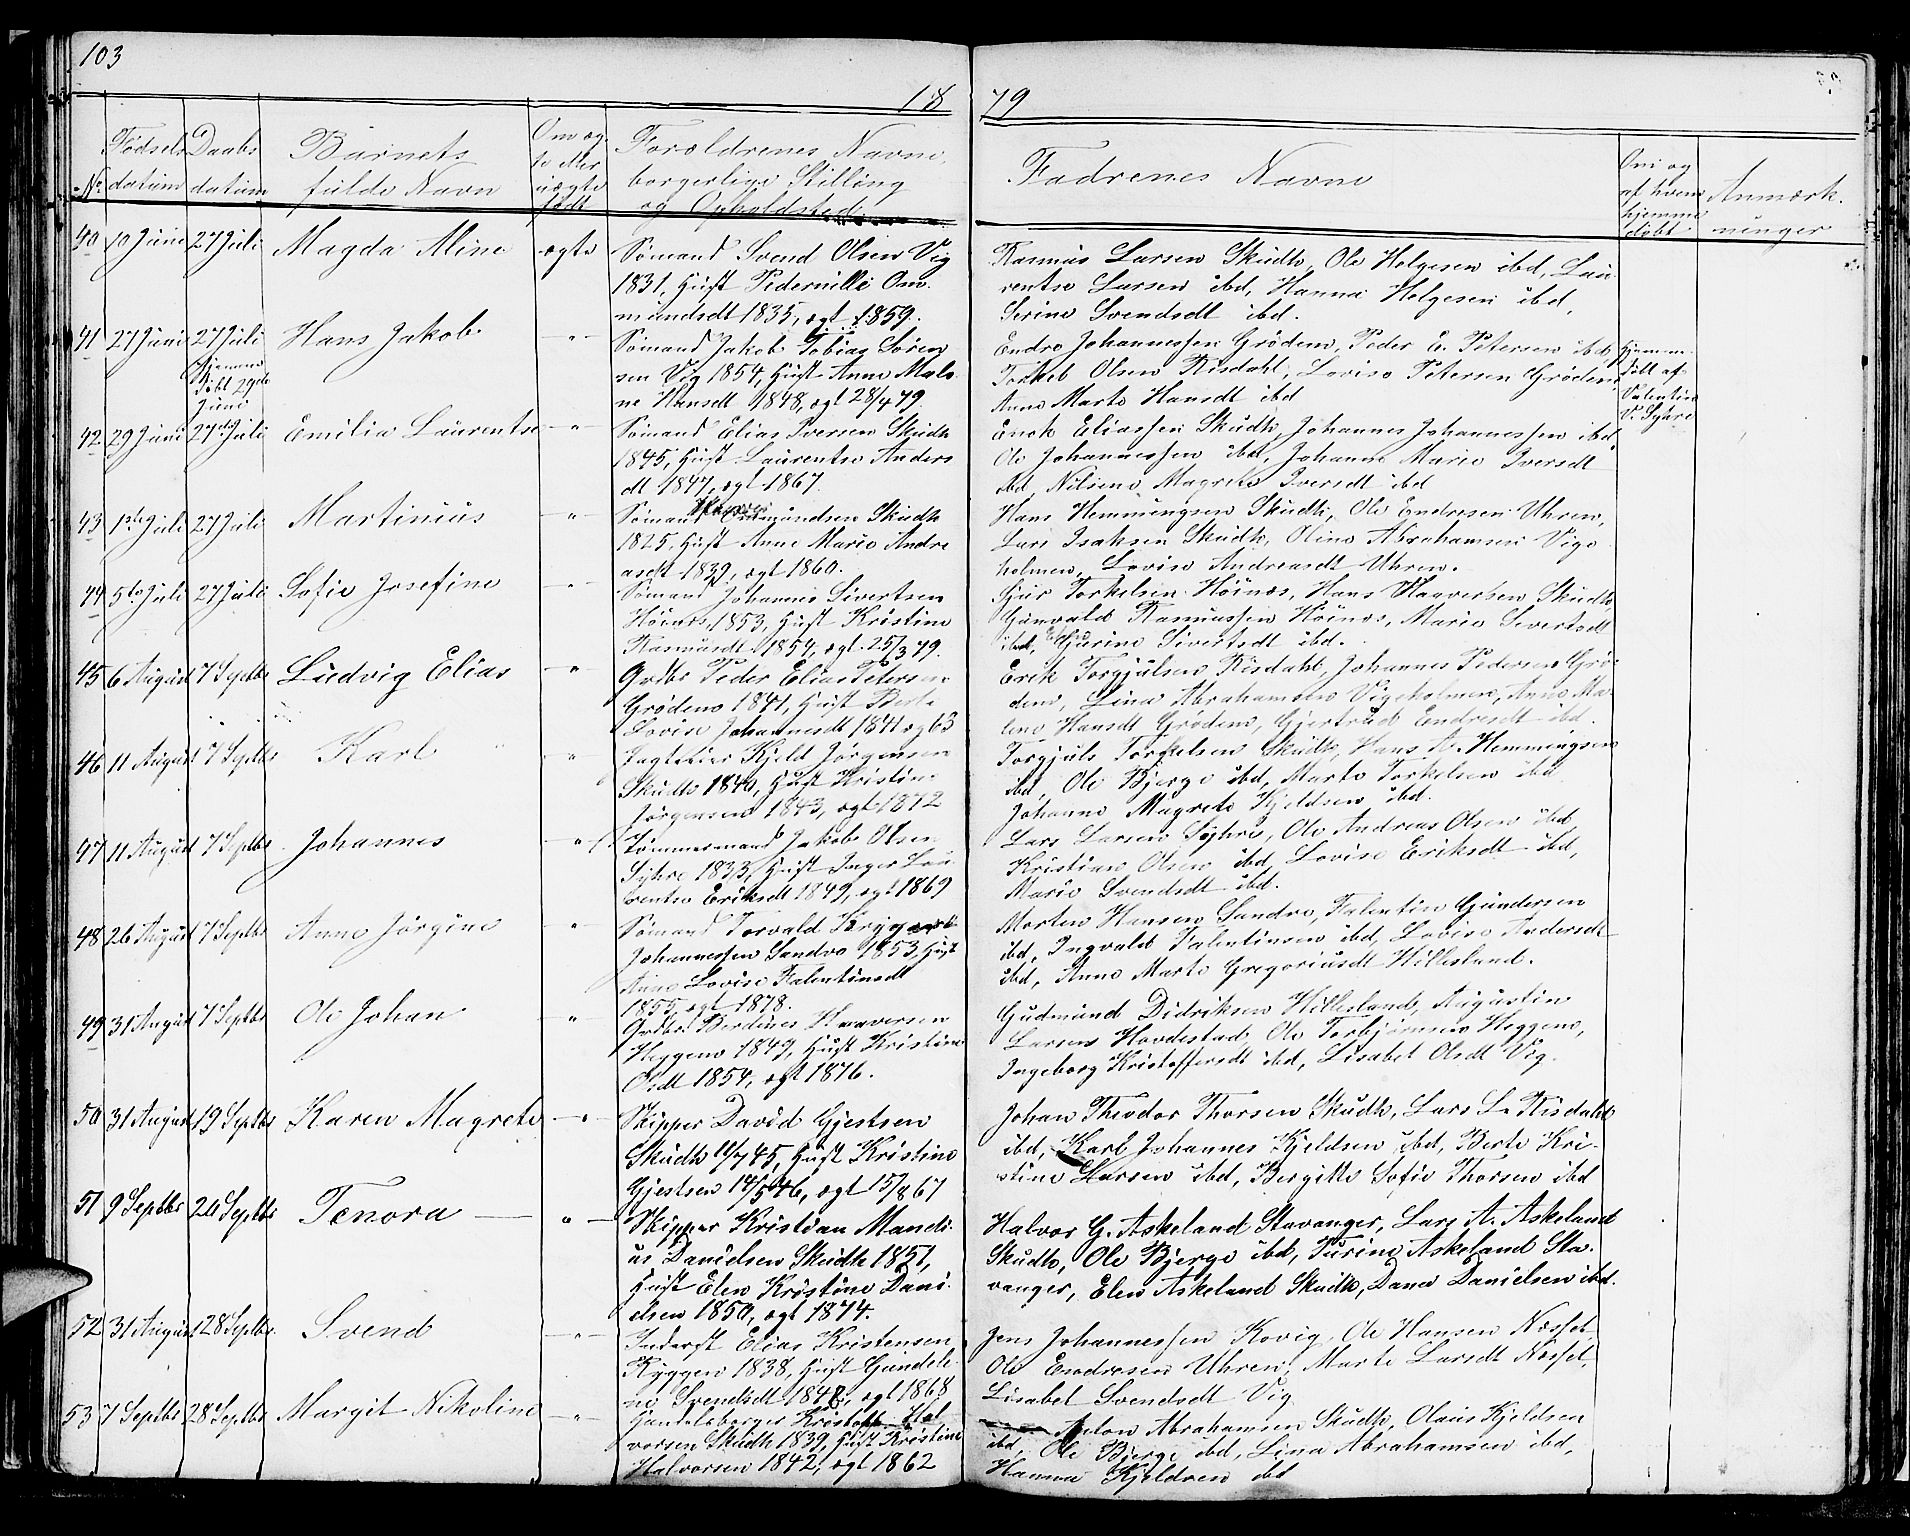 103
18 79
No
Fødsels datum
Daabs datum
Barnets fulde Navn
Om ægte eller uægte født
Forældrenes Navne, borgerlige Stilling og Opholdsted
Fadrenes Navne
Om og af hvem hjemmedøbt
Anmærkninger
40 10 Juni 27 Juli Magda Aline ægte
Sømand Svend Olsen Vig
1831, Hust Pedernille Om
mundsdt 1835, ægt 1859.
Rasmus Larsen Skudh, Ole Helgesen ibd, Lau
rentse Larsen ibd, Hanna Helgesen ibd,
Serine Svendsdt ibd.
41 27 Juni 27 Juli Hans Jakob -"-
Hjemme
døbt 29de
Juni
Sømand Jakob Tobias Søren
sen Vig 1854, Hust Anne Male
ne Hansdt 1848, ægt 28/4 79
Endre Johannessen Grødem, Peder E. Petersen ibd,
Torkel Olsen Risdahl, Lovise Petersen Grødem
Anne Marte Hansdt ibd
Hjemme
døbt af
Valentin
V. Syhre
42 29 Juni 27de Juli Emilia Laurentse -"-
Sømand Elias Iversen Skudh
1845, Hust Laurentse Anders
dt 1847, ægt 1867.
Enok Eliassen Skudh, Johannes Johannessen ibd
Ole Johannessen ibd, Johanne Marie Iversdt
ibd, Nilsine Magrete Iversdt ibd
43 1ste Juli 27 Juli Martinius -"-
Sømand Ommundsen Skudh
1825, Hust Anne Marie Andre
asdt 1839, ægt 1860.
Hans Hemmingsen Skudh, Ole Endresen Uhren,
Lars Isaksen Skudh, Oline Abrahamsen Vige
holmen, Lovise Andreasdt Uhren.
44 5te Juli 27 Juli Sofie Josefine -"-
Sømand Johannes Sivertsen
Høines, 1853, Hust Kristine
Rasmusdt 1859, ægt 25/3 79.
Sjur Torkelsen Høines, Hans Haaversen Skudh
Gunvald Rasmussen Høines, Marie Sivertsdt
ibd, Gurine Sivertsdt ibd.
45 6 August 7 Septbr Ludvig Elias -"-
Grdbr Peder Elias Petersen
Grødem 1841, Hust Berte
Lovise Johannesdt 1841 æg 63
Erik Torgjulsen Risdahl, Johannes Pedersen Grø
dem, Lina Abrahamsen Vigeholmen, Anne Ma
lene Hansdt Grødem, Gjertrud Endresdt ibd.
46 11 August 7 Septbr Karl -"-
Jagteier Kjeld Jørgensen
Skudh 1840, Hust Kristine
Jørgensen 1843, ægt 1872
Torgjuls Torkelsen Skudh, Hans A. Hemmingsen
ibd, Ole Bjerge ibd, Marte Torkelsen ibd
Johanne Magrete Kjeldsen ibd.
47 11 August 7 Septbr Johannes -"-
Tømmermand Jakob Olsen
Syhre 1833, Hust Inger Lau
rentse Eriksdt 1849, ægt 1869
Lars Larsen Syhre, Ole Andreas Olsen ibd
Kristian Olsen ibd, Lovise Eriksdt ibd,
Marie Svendsdt ibd.
48 26 August 7 Septbr Anne Jørgine -"-
Sømand Torvald
Johannessen Sandve 1853, Hust
Anne Lovise Falentinsdt
1855, ægt 1878.
Morten Hansen Sandve, Falentin Gundersen
ibd, Ingvald Falentinsen ibd, Lovise Andersdt
ibd, Anne Marte Gregoriusdt Hillesland.
49 31 August 7 Septbr Ole Johan -"-
Grdbr Berdines Haaversen
Heggem 1849, Hust Kristine
Olsdt 1854, ægt 1876.
Gudmund Didriksen Hillesland, Augustin
Larsen Hovdestad, Ole Torbjørnsen Heggem,
Ingeborg Kristoffersdt ibd, Lisabet Olsdt Vig.
50 31 August 19 Septbr Karen Magrete -"-
Skipper David Gjestsen
Skudh 11/7 45, Hust Kristine
Gjestsen 14/5 46, ægt 15/8 67
Johan Theodor Thorsen Skudh, Lars L. Risdahl
ibd, Karl Johannes Kjeldsen ibd, Berte Kri-
stine Larsen ibd, Bergitte Sofie Thorsen ibd
51 9 Septbr 26 Septbr Tenora -"-
Skipper Kristian Mandi
us Danielsen Skudh 1851,
Hust Elen Kristine Dani
elsen 1850, ægt 1874.
Halvor G. Askeland Stavanger, Lars A. Askeland
Skudh, Ole Bjerge ibd, Turine Askeland Sta-
vanger, Elen Askeland Skudh, Dana Danielsen ibd.
52 31 August 28 Septbr Svend -"-
Inderst Elias Kristensen
Ryggen 1838, Hust Gundele
ne Svendsdt 1848, ægt 1868
Jens Johannessen Kovig, Ole Hansen Nesset
Ole Endresen Uhren, Marte Larsdt Nesset,
Lisabet Svendsdt Vig
53 7 Septbr 28 Septbr Margit Nikoline -"-
Handelsborger Kristofer Hal
vorsen Skudh 1839, Hust Kristine
Halvorsen 1842, ægt 1862
Anton Abrahamsen Skudh, Olaus Kjeldsen
ibd, Ole Bjerge ibd, Lina Abrahamsen ibd,
Hanna Kjeldsen ibd